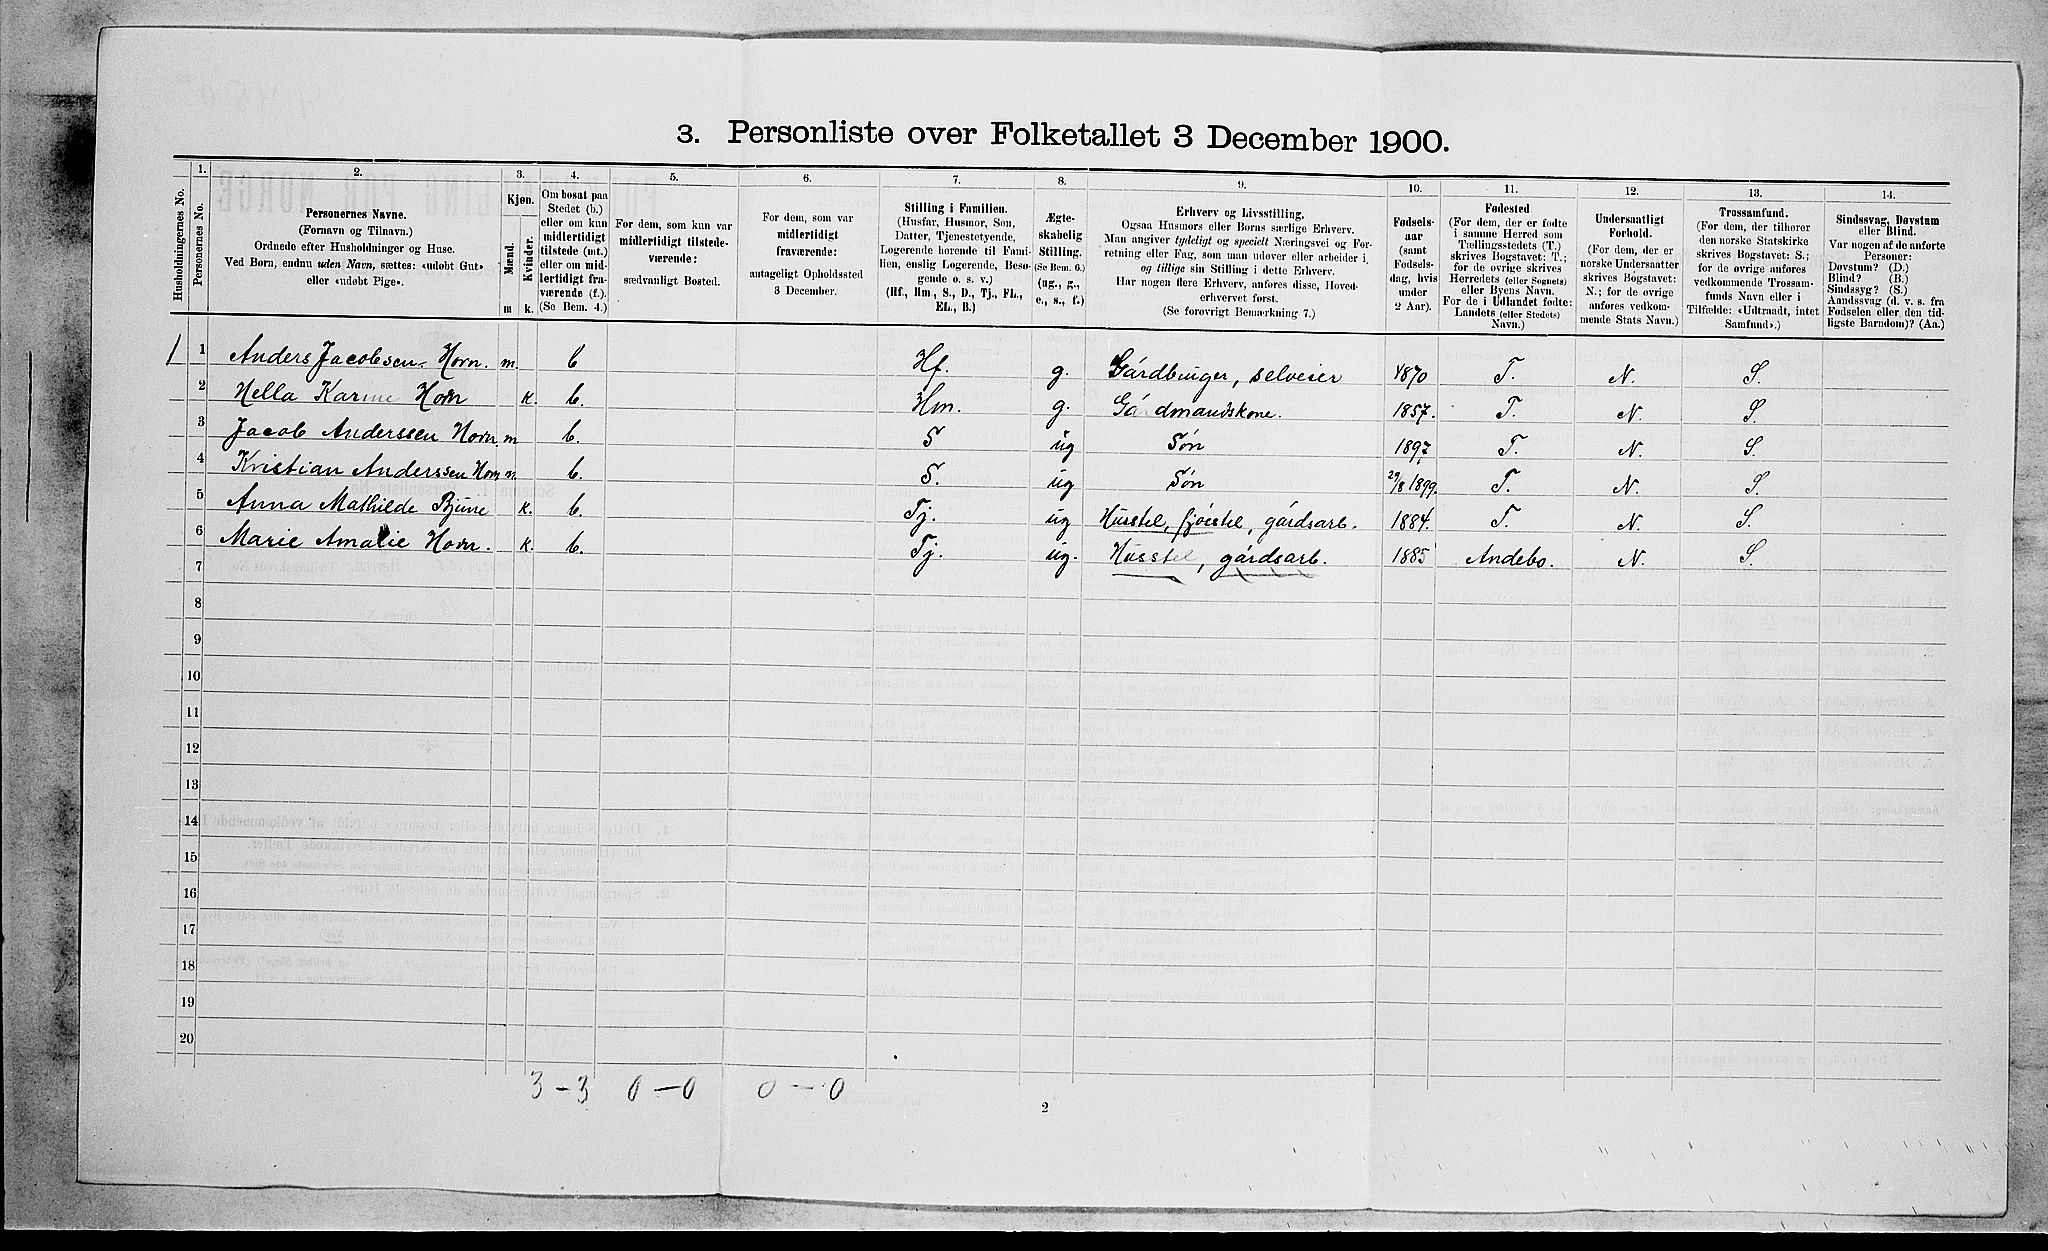 3. Personliste over Folketallet 3 December 1900.
Husholdningernes No.
1.
Personernes No.
2.
Personernes Navne.
(Fornavn og Tilnavn.)
Ordnede efter Husholdninger og Huse.
Ved Børn, endnu uden Navn, sættes: «udøbt Gut»
eller «udøbt Pige».
3.
Kjøn.
Mænd.
Kvinder.
m k.
4.
Om bosat paa
Stedet (b.)
eller om kun
midlertidigt
tilstede (mt.)
eller om mid-
lertidigt fra-
værende (f.).
(Se Bem. 4.)
5.
For dem, som kun var
midlertidigt tilstede-
værende:
sædvanligt Bosted.
6.
For dem, som var
midlertidigt
fraværende:
antageligt Opholdssted
3 December.
7.
Stilling i Familien.
(Husfar, Husmor, Søn,
Datter, Tjenestetyende,
Logerende hørende til Fami-
lien, enslig Logerende, Besø-
gende o. s. v.)
(Hf., Hm., S., D., Tj., FL.,
EL., B.)
8.
Ægte-
skabelig
Stilling.
(Se Bem. 6.)
(ug., g.,
e., s., f.)
9.
Erhverv og Livsstilling.
Ogsaa Husmors eller Børns særlige Erhverv.
Man angiver tydeligt og specielt Næringsvei og For-
retning eller Fag, som man udøver eller arbeider i,
og tillige sin Stilling i dette Erhverv.
Har nogen flere Erhverv, anføres disse, Hoved-
erhvervet først.
(Se forøvrigt Bemærkning 7.)
10.
Fødsels-
aar
(samt
Fødsels-
dag, hvis
under
2 Aar).
11.
Fødested
(For dem, der er fødte
i samme Herred som
Tællingsstedets (T.)
skrives Bogstavet: T.;
for de øvrige skrives
Herredets (eller Sognets)
eller Byens Navn.
For de i Udlandet fødte:
Landets (eller Stedets)
Navn.)
12.
Undersaatligt
Forhold.
(For dem, der er
norske Undersaatter
skrives Bogstavet:
N.; for de øvrige
anføres vedkom-
mende Stats Navn.)
13.
Trossamfund.
(For dem, der tilhører
den norske Statskirke
skrives Bogstavet: S.;
for de øvrige anføres
vedkommende Trossam-
funds Navn eller i
Tilfælde: «Udtraadt, intet
Samfund».)
14.
Sindssvag, Døvstum
eller Blind.
Var nogen af de anførte
Personer:
Døvstum? (D.)
Blind? (B.)
Sindssyg? (S.)
Aandssvag (d. v. s. fra
Fødselen eller den tid-
ligste Barndom)? (Aa.)
1 1 Anders Jacobsen Horn. m. b Hf. g. Gårdbruger, selveier 1870 T. N. S.
2 Hella Karine Horn k. b. Hm. g. Gårdmandskone. 1857. T. N. S.
3 Jacob Anderssen Horn m b. S ug Søn 1897 T. N. S.
4 Kristian Anderssen Horn m. b. S. ug Søn 29/8 1899. T. N. S.
5 Anna Mathilde Bjune k. b. Tj. ug Husstel, fjøsstel, gårdsarb. 1884. T. N. S.
6 Marie Amalie Horn. k. b. Tj. ug. Husstel, gårdsarb. 1885 Andebo. N. S.
7
8
9
10
11
12
13
14
15
16
17
18
19
20
3 – 3 0 – 0 0 – 0
2